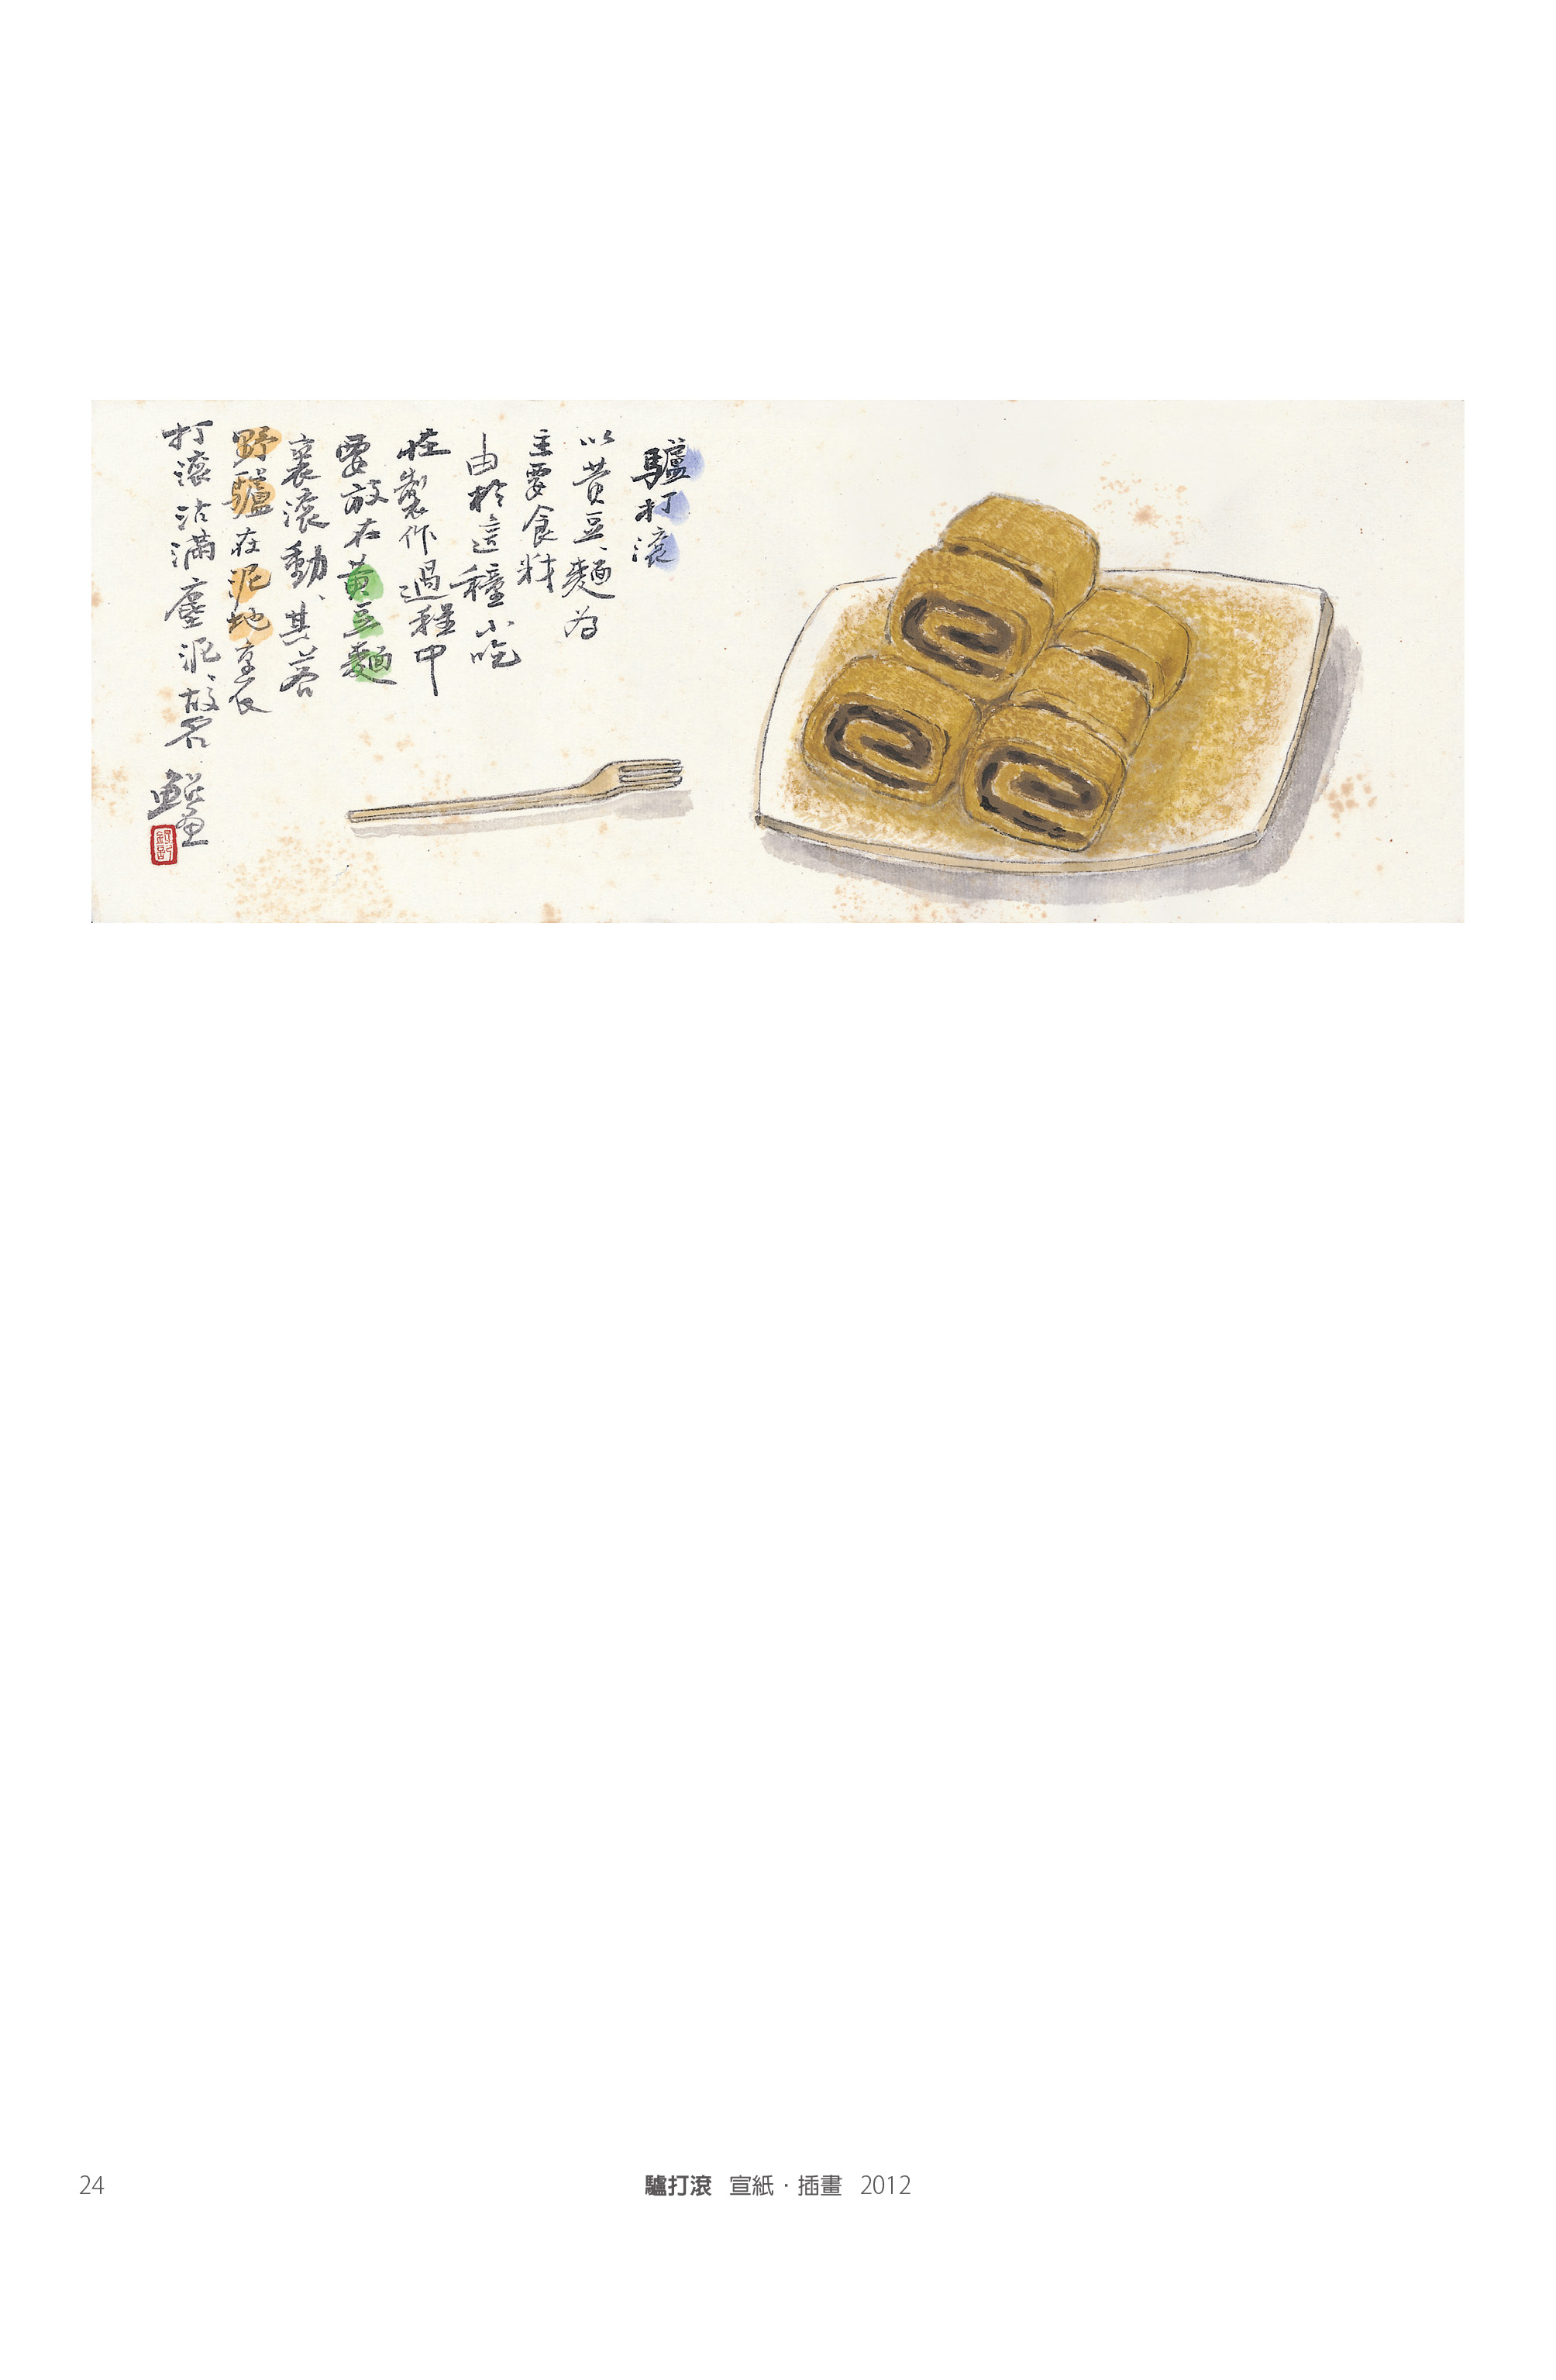 驢打滾
以黄豆麵為
主要食料
由於這種小吃
在製作過程中
要放在黄豆麵
裏滾動、其若
野驢在泥地
打滾沾滿塵泥、故名
畫
24
驢打滾 宣紙·插畫 2012